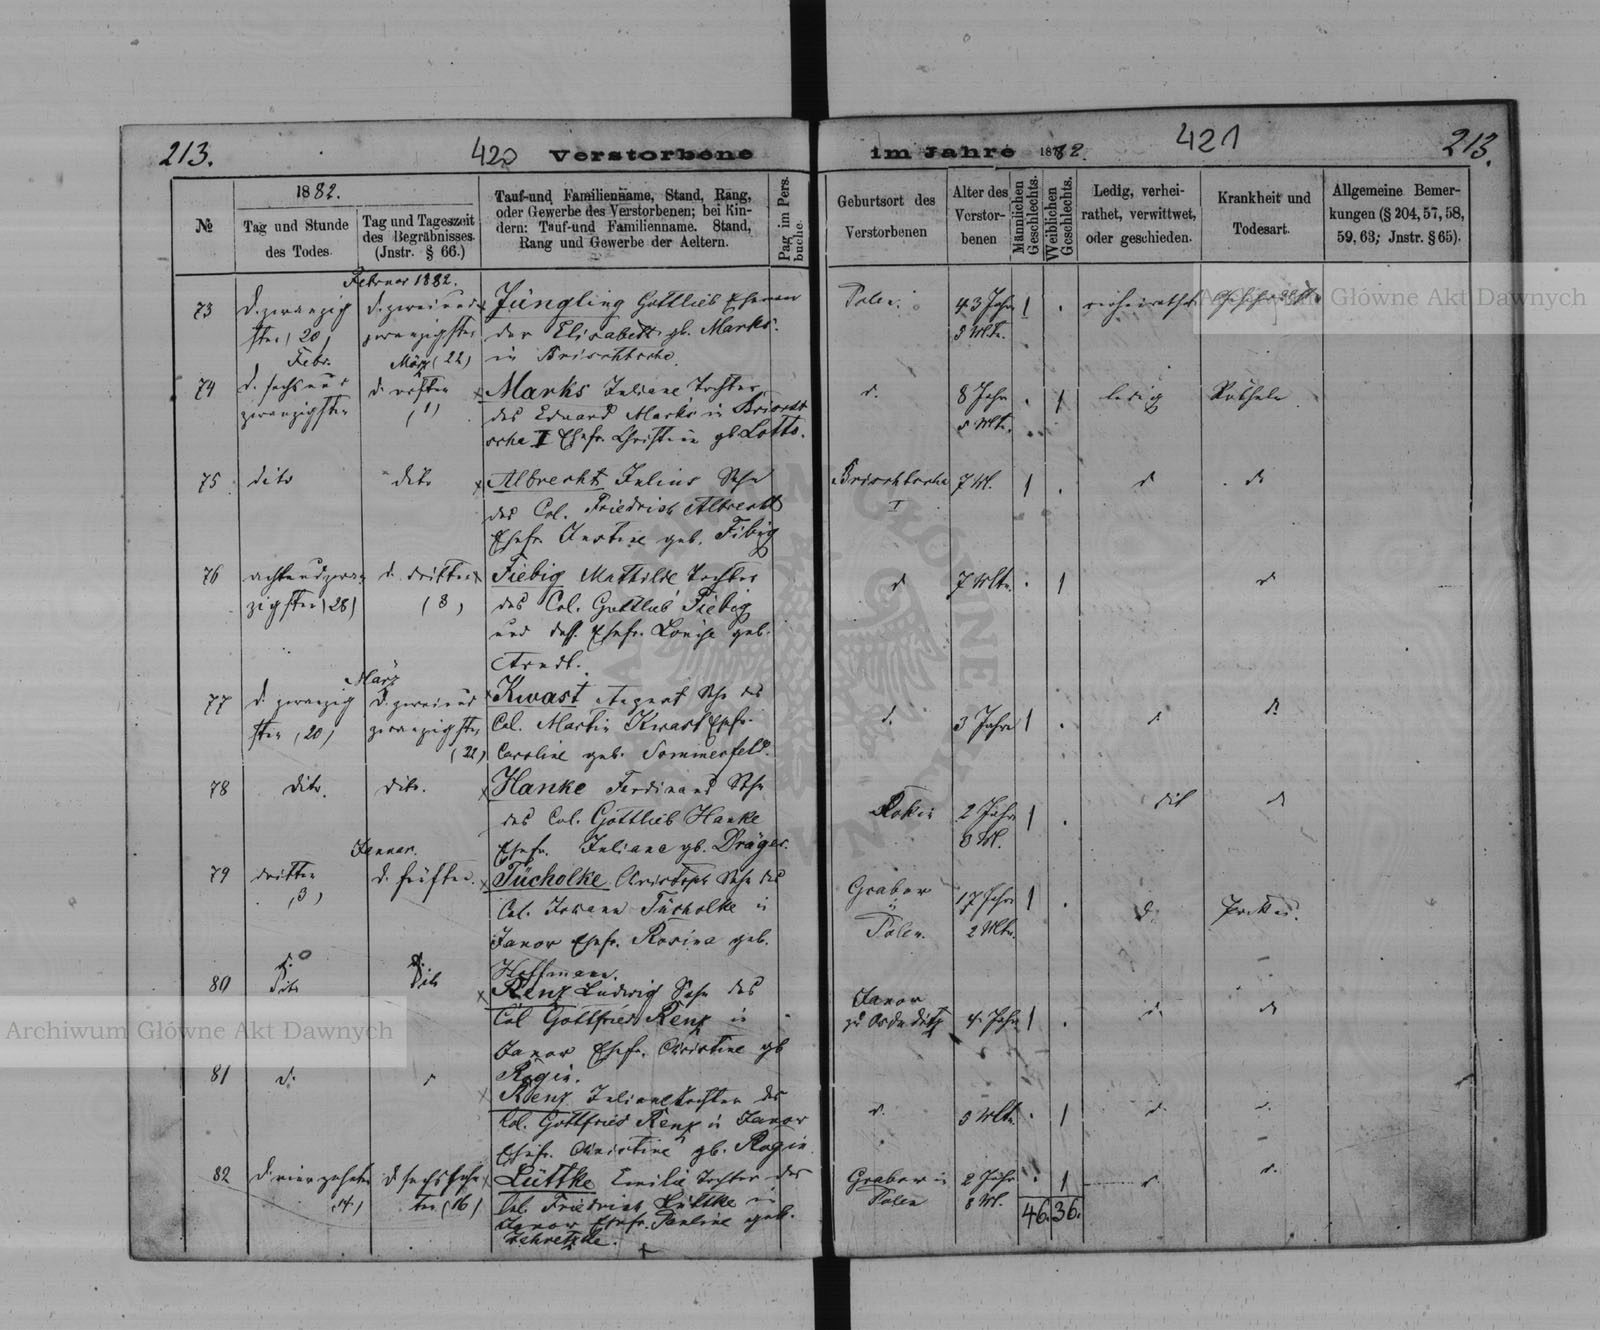 213.
420
Verstorbene
im Jahre 1882.
421
213.
№
1882.
Tag und Stunde
des Todes.
Tag und Tageszeit
des Begräbnisses.
(Jnstr. § 66.)
Tauf-und Familienname, Stand, Rang,
oder Gewerbe des Verstorbenen; bei Kin-
dern: Tauf-und Familienname. Stand,
Rang und Gewerbe der Aeltern.
Pag im Pers.
buche.
Geburtsort des
Verstorbenen
Alter des
Verstor-
benen
Männlichen
Geschlechts.
Weiblichen
Geschlechts.
Ledig, verhei-
rathet, verwittwet,
oder geschieden.
Krankheit und
Todesart.
Allgemeine Bemer-
kungen (§ 204, 57, 58,
59, 63; Jnstr. § 65).
Februar 1882.
73
d. zwanzig
sten (20)
d. zweiund
zwanzigsten
(22)
Jüngling Gottlieb Eheman
der Elisabeth gb. Marks.
in Brischtsche
Polen.
43 Jahr
1
verheirathet
74
Febr.
d. sechsund
zwanzigsten
März
d. ersten
(1)
Marks Juliane Tochter
des Eduard Marks in Brischt
sche I Ehefr. Christine gb. Lotto.
d.
8 Jahr
1
ledig
Rötheln
75
dito
dito
Albrecht Julius Sohn
des Col. Friedrich Albrecht
Ehefr. Justine geb. Fibig
Brischtsche
I
1
d
do
76
achtundzwan
zigsten (28)
d. dritten
(3)
Fiebig Mathilde Tochter
des Col. Gottlieb Fiebig
und dess. Ehefr. Louise geb.
Arndt.
d
7 Mte.
1
d
März
77
d. zwanzig
sten (20)
d. zweiund
zwanzigsten
(22)
Kwast August Sohn des
Col. Martin Kwast Ehefr.
Caroline geb. Sommerfeld.
d.
3 Jahre
1
d.
d.
78
dito.
dito.
Hanke Ferdinand Sohn
des Col. Gottlieb Hanke
Ehefr. Juliane gb. Dräger.
Rokin
2 Jahr
1
dit
do
Januar.
79
dritten
(3)
d. fünften.
Tücholke Christoph Sohn des
Col. Johann Tücholke in
Janow Ehefr. Rosina geb.
Hoffmann.
Grabow
in
Polen.
17 Jahr
2 Mte.
1
d.
Pocken.
80
dito
dito
Renz Ludwig Sohn des
Col Gottfried Renz in
Janow Ehefr. Christine gb
Rogin.
Janow
4 Jahr
1
d.
do
81
d.
Renz Juliane Tochter des
Col. Gottfried Renz in Janow
Ehefr. Christine gb. Rogin
d.
1
d.
82
d. vierzehnten
(14)
d sechszehn
ten (16)
Lüttke Emilie Tochter des
Col. Friedrich Lüttke in
Janow Ehefr. Pauline geb.
Grabow in
Polen
2 Jahr
1
46. 36.
Archiwum Główne Akt Dawnych
Główne Akt Dawnych